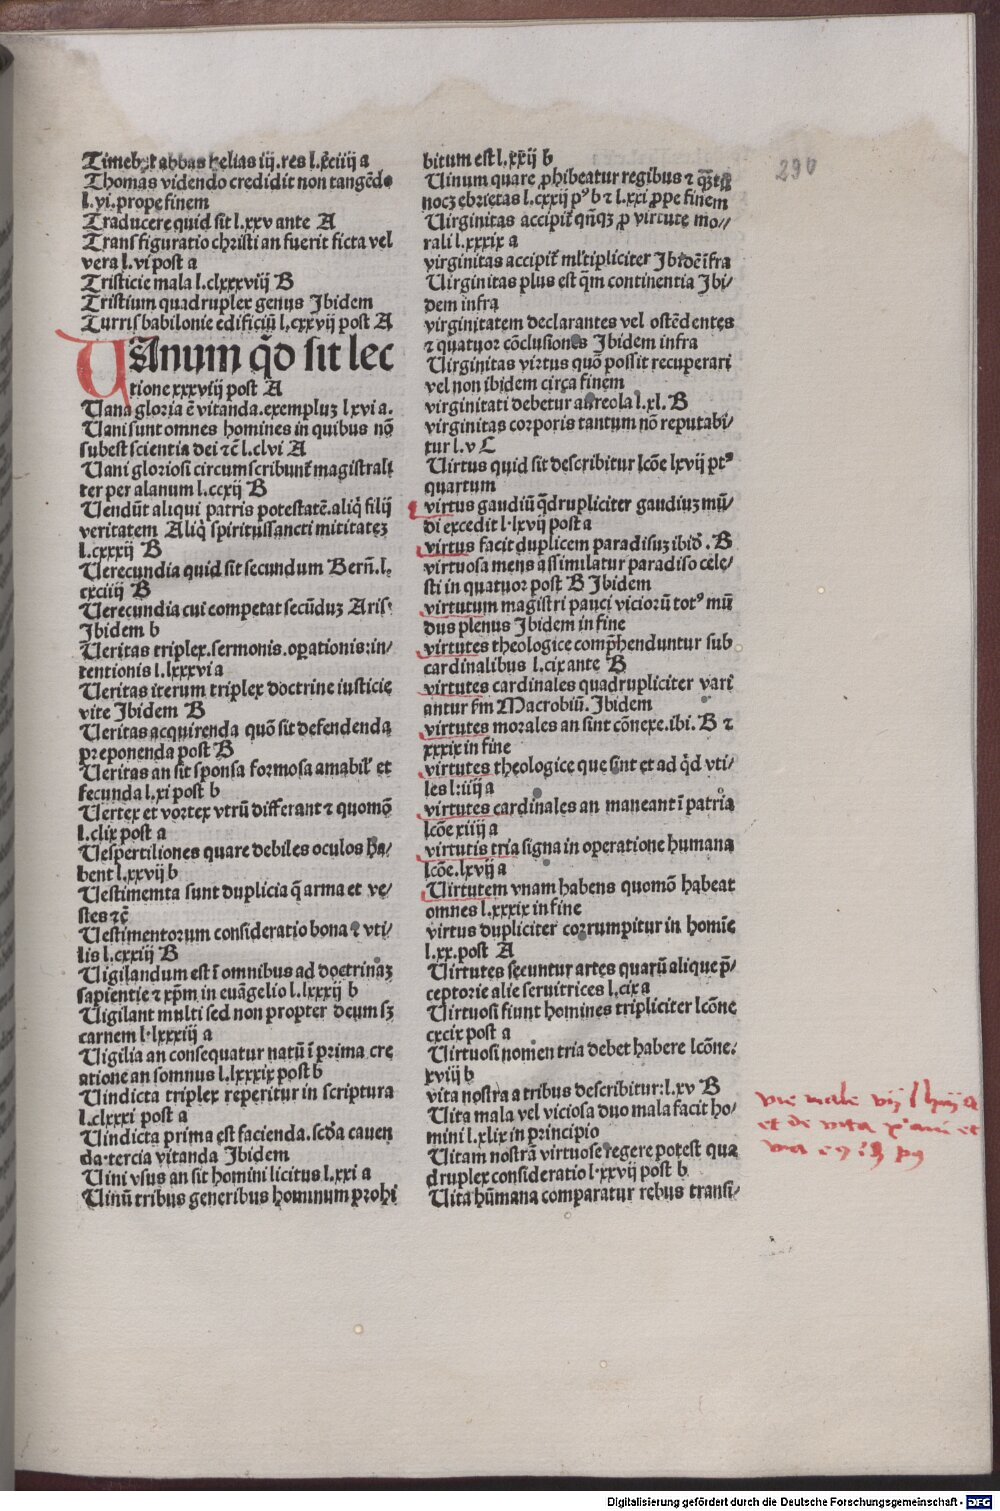 Timebat abbas helias iij.res l.xciiij a
Thomas videndo credidit non tangēdo
l.vi.prope finem
Traducere quid sit l.xxv ante A
Transfiguratio christi an fuerit ficta vel
vera l.vi post a
Tristicie mala l.clxxxviij B
Tristium quadruplex genus Ibidem
Turris babilonie edificiū l.cxxvij post A
UAnum q̄d sit lec
tione xxxviij post A
Uana gloria ē vitanda.exempluꝫ lxvi a.
Uani sunt omnes homines in quibus nō
subest scientia dei ⁊c̄ l.clvi A
Uani gloriosi circumscribunt᷑ magistrali
ter per alanum l.ccxij B
Uendūt aliqui patris potestatē.aliq̇ filij
veritatem Aliq̇ spiritussancti mititateꝫ
l.cxxxij B
Uerecundia quid sit secundum Berñ.l.
cxciiij B
Uerecundia cui competat secūduꝫ Aris.
Ibidem b
Ueritas triplex.sermonis.oꝑationis:in/
tentionis l.lxxxvi a
Ueritas iterum triplex doctrine iusticie
vite Ibidem B
Ueritas acquirenda quō sit defendenda
preponenda post B
Ueritas an sit sponsa formosa amabil᷑ et
fecunda l.xi post b
Uertex et vortex vtrū differant ⁊ quomō
l.clix post a
Uespertiliones quare debiles oculos ha/
bent l.xxvij b
Uestimemta sunt duplicia q̄ arma et ve/
stes ⁊c̄
Uestimentorum consideratio bona ⁊ vti/
lis l.cxxiij B
Uigilandum est ī omnibus ad doctrinaꝫ
sapientie ⁊ xp̄m in euāgelio l.lxxxij b
Uigilant multi sed non propter deum sꝫ
carnem l.lxxxiij a
Uigilia an consequatur natū ī prima cre
atione an somnus l.lxxxix post b
Uindicta triplex reperitur in scriptura
l.clxxxi post a
Uindicta prima est facienda.scd̄a cauen
da.tercia vitanda Ibidem
Uini vsus an sit homini licitus l.xxi a
Uinū tribus generibus hominum prohi
bitum est l.xxij b
Uinum quare ꝓhibeatur regibus ⁊ qꝫta
nocꝫ ebrietas l.cxxij pꝰ b ⁊ l.xxi ꝓpe finem
Uirginitas accipit᷑ qn̄qꝫ ꝓ virtute mo//
rali l.xxxix a
virginitas accipit᷑ ml̓tipliciter Ibidē īfra
Uirginitas plus est q̄m continentia Ibi/
dem infra
virginitatem declarantes vel ostēdentes
⁊ quatuor cōclusiones Ibidem infra
Uirginitas virtus quō possit recuperari
vel non ibidem circa finem
virginitati debetur aureola l.xl.B
virginitas corporis tantum nō reputabi/
tur l.v C
Uirtus quid sit describitur lcōe lxvij ptꝰ
quartum
virtus gaudiū q̄drupliciter gaudiuꝫ mū/
di excedit l.lxvij post a
virtus facit duplicem paradisuꝫ ibid̄.B
virtuosa mens assimilatur paradiso cele/
sti in quatuor post B Ibidem
virtutum magistri pauci viciorū totꝰ mū
dus plenus Ibidem in fine
virtutes theologice comp̄henduntur sub
cardinalibus l.cix ante B
virtutes cardinales quadrupliciter vari
antur fm Macrobiū.Ibidem
virtutes morales an sint cōnexe.ibi.B ⁊
xxxix in fine
virtutes theologice que sint et ad q̇d vti/
les l:iiij a
virtutes cardinales an maneant ī patria
lcōe xiiij a
virtutis tria signa in operatione humana
lcōe.lxvij a
Uirtutem vnam habens quomō habeat
omnes l.xxxix in fine
virtus dupliciter corrumpitur in homīe
l.xx.post A
Uirtutes secuntur artes quarū alique p̄/
ceptorie alie seruitrices l.cix a
Uirtuosi fiunt homines tripliciter lcōne
cxcix post a
Uirtuosi nomen tria debet habere lcōne.
xviij b
vita nostra a tribus describitur:l.xv B
Uita mala vel viciosa duo mala facit ho/
mini l.xlix in principio
Uitam nostrā virtuose regere potest qua
druplex consideratio l.xxvij post b
Uita hūmana comparatur rebus transi/
290
Digitalisierung gefördert durch die Deutsche Forschungsgemeinschaft - DFG